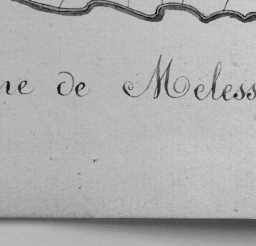 ne de Meless